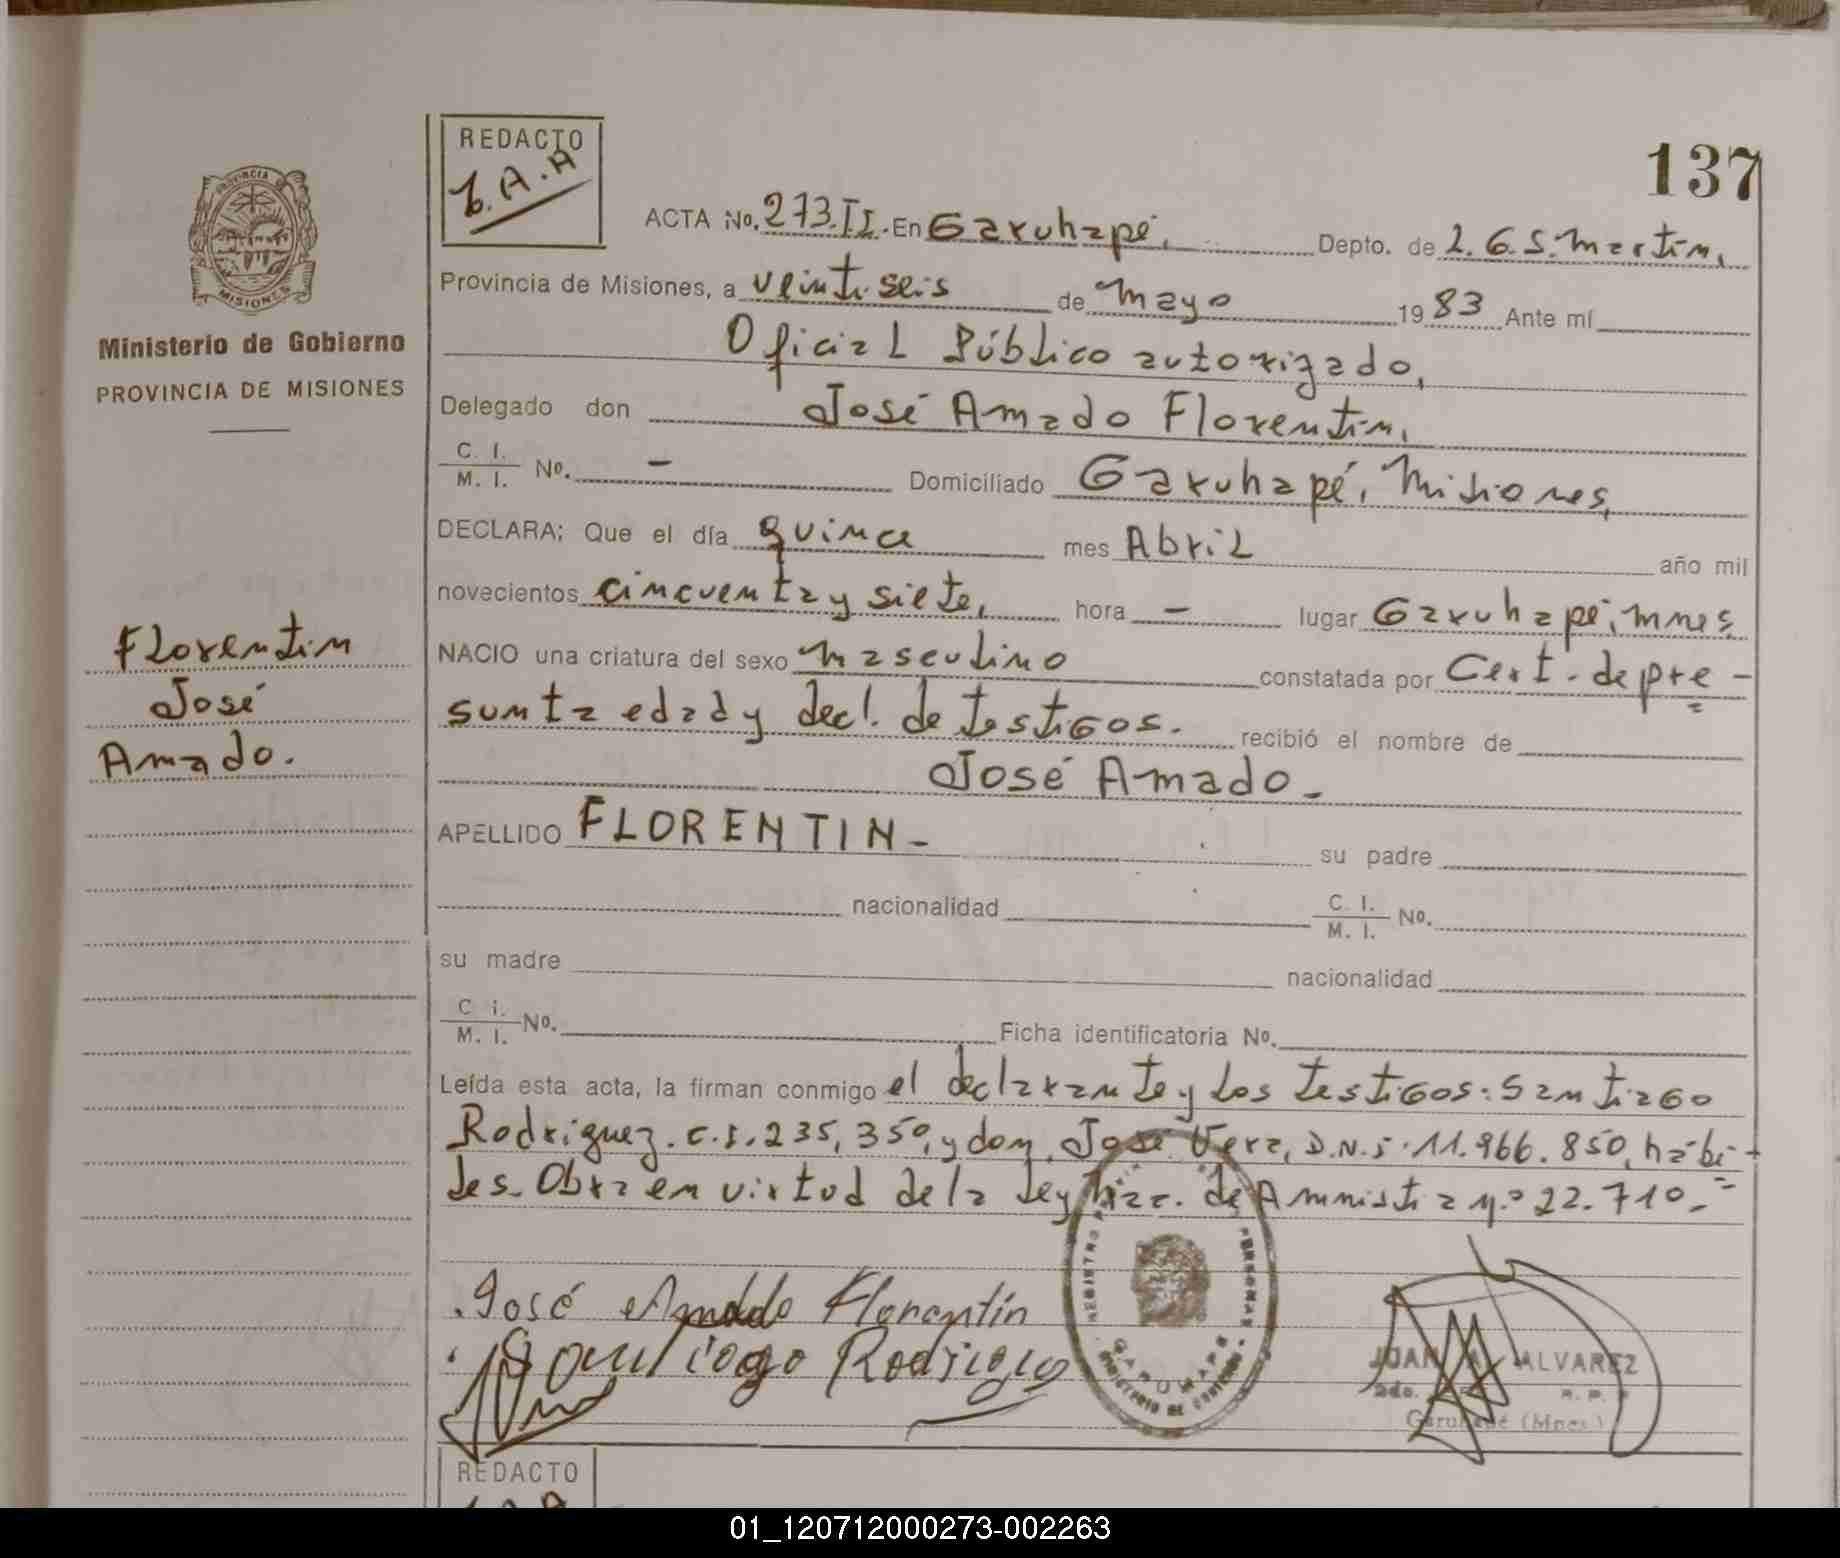 137
REDACTO
ACTA No. 273.II. En Garuhapé, Depto. de L. G. S. Martín,
Provincia de Misiones, a veintiseis de mayo 1983 Ante mí
Oficial Público autorizado,
Delegado don José Amado Florentín,
C. I. M. I. No. - Domiciliado Garuhapé, Misiones,
DECLARA; Que el día quince mes Abril año mil
novecientos cincuenta y siete, hora - lugar Garuhapé, Mnes,
NACIO una criatura del sexo masculino constatada por Cert. de pre-
sunta edad y decl. de testigos. recibió el nombre de
José Amado.-
APELLIDO FLORENTIN- su padre
nacionalidad C. I. M. I. No.
su madre nacionalidad
C i. M. I. No. Ficha identificatoria No.
Leída esta acta, la firman conmigo el declarante y los testigos: Santiago
Rodriguez. C.I. 235,350, y don José Vera, D.N.I. 11.966.850, hábi-
les. Obra en virtud de la Ley Nac. de Amnistia n.º 22.710.-
José Amado Florentín
Santiago
JUAN ALVAREZ
Garuhapé (Mnes.)
PROVINCIA
MISIONES
Ministerio de Gobierno
PROVINCIA DE MISIONES
Florentín
José
Amado.
REDACTO
01_120712000273-002263